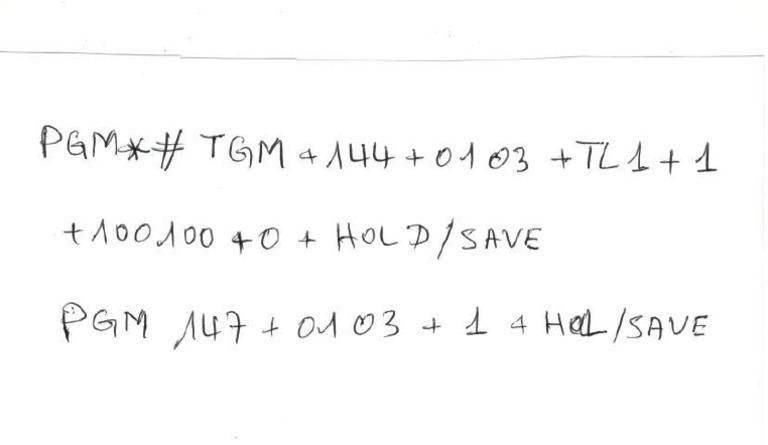 PGM*# TGM + 144 + 0103 + TL1 + 1
+ 100100 + 0 + HOLD/SAVE
PGM 147 + 0103 + 1 + HOL/SAVE